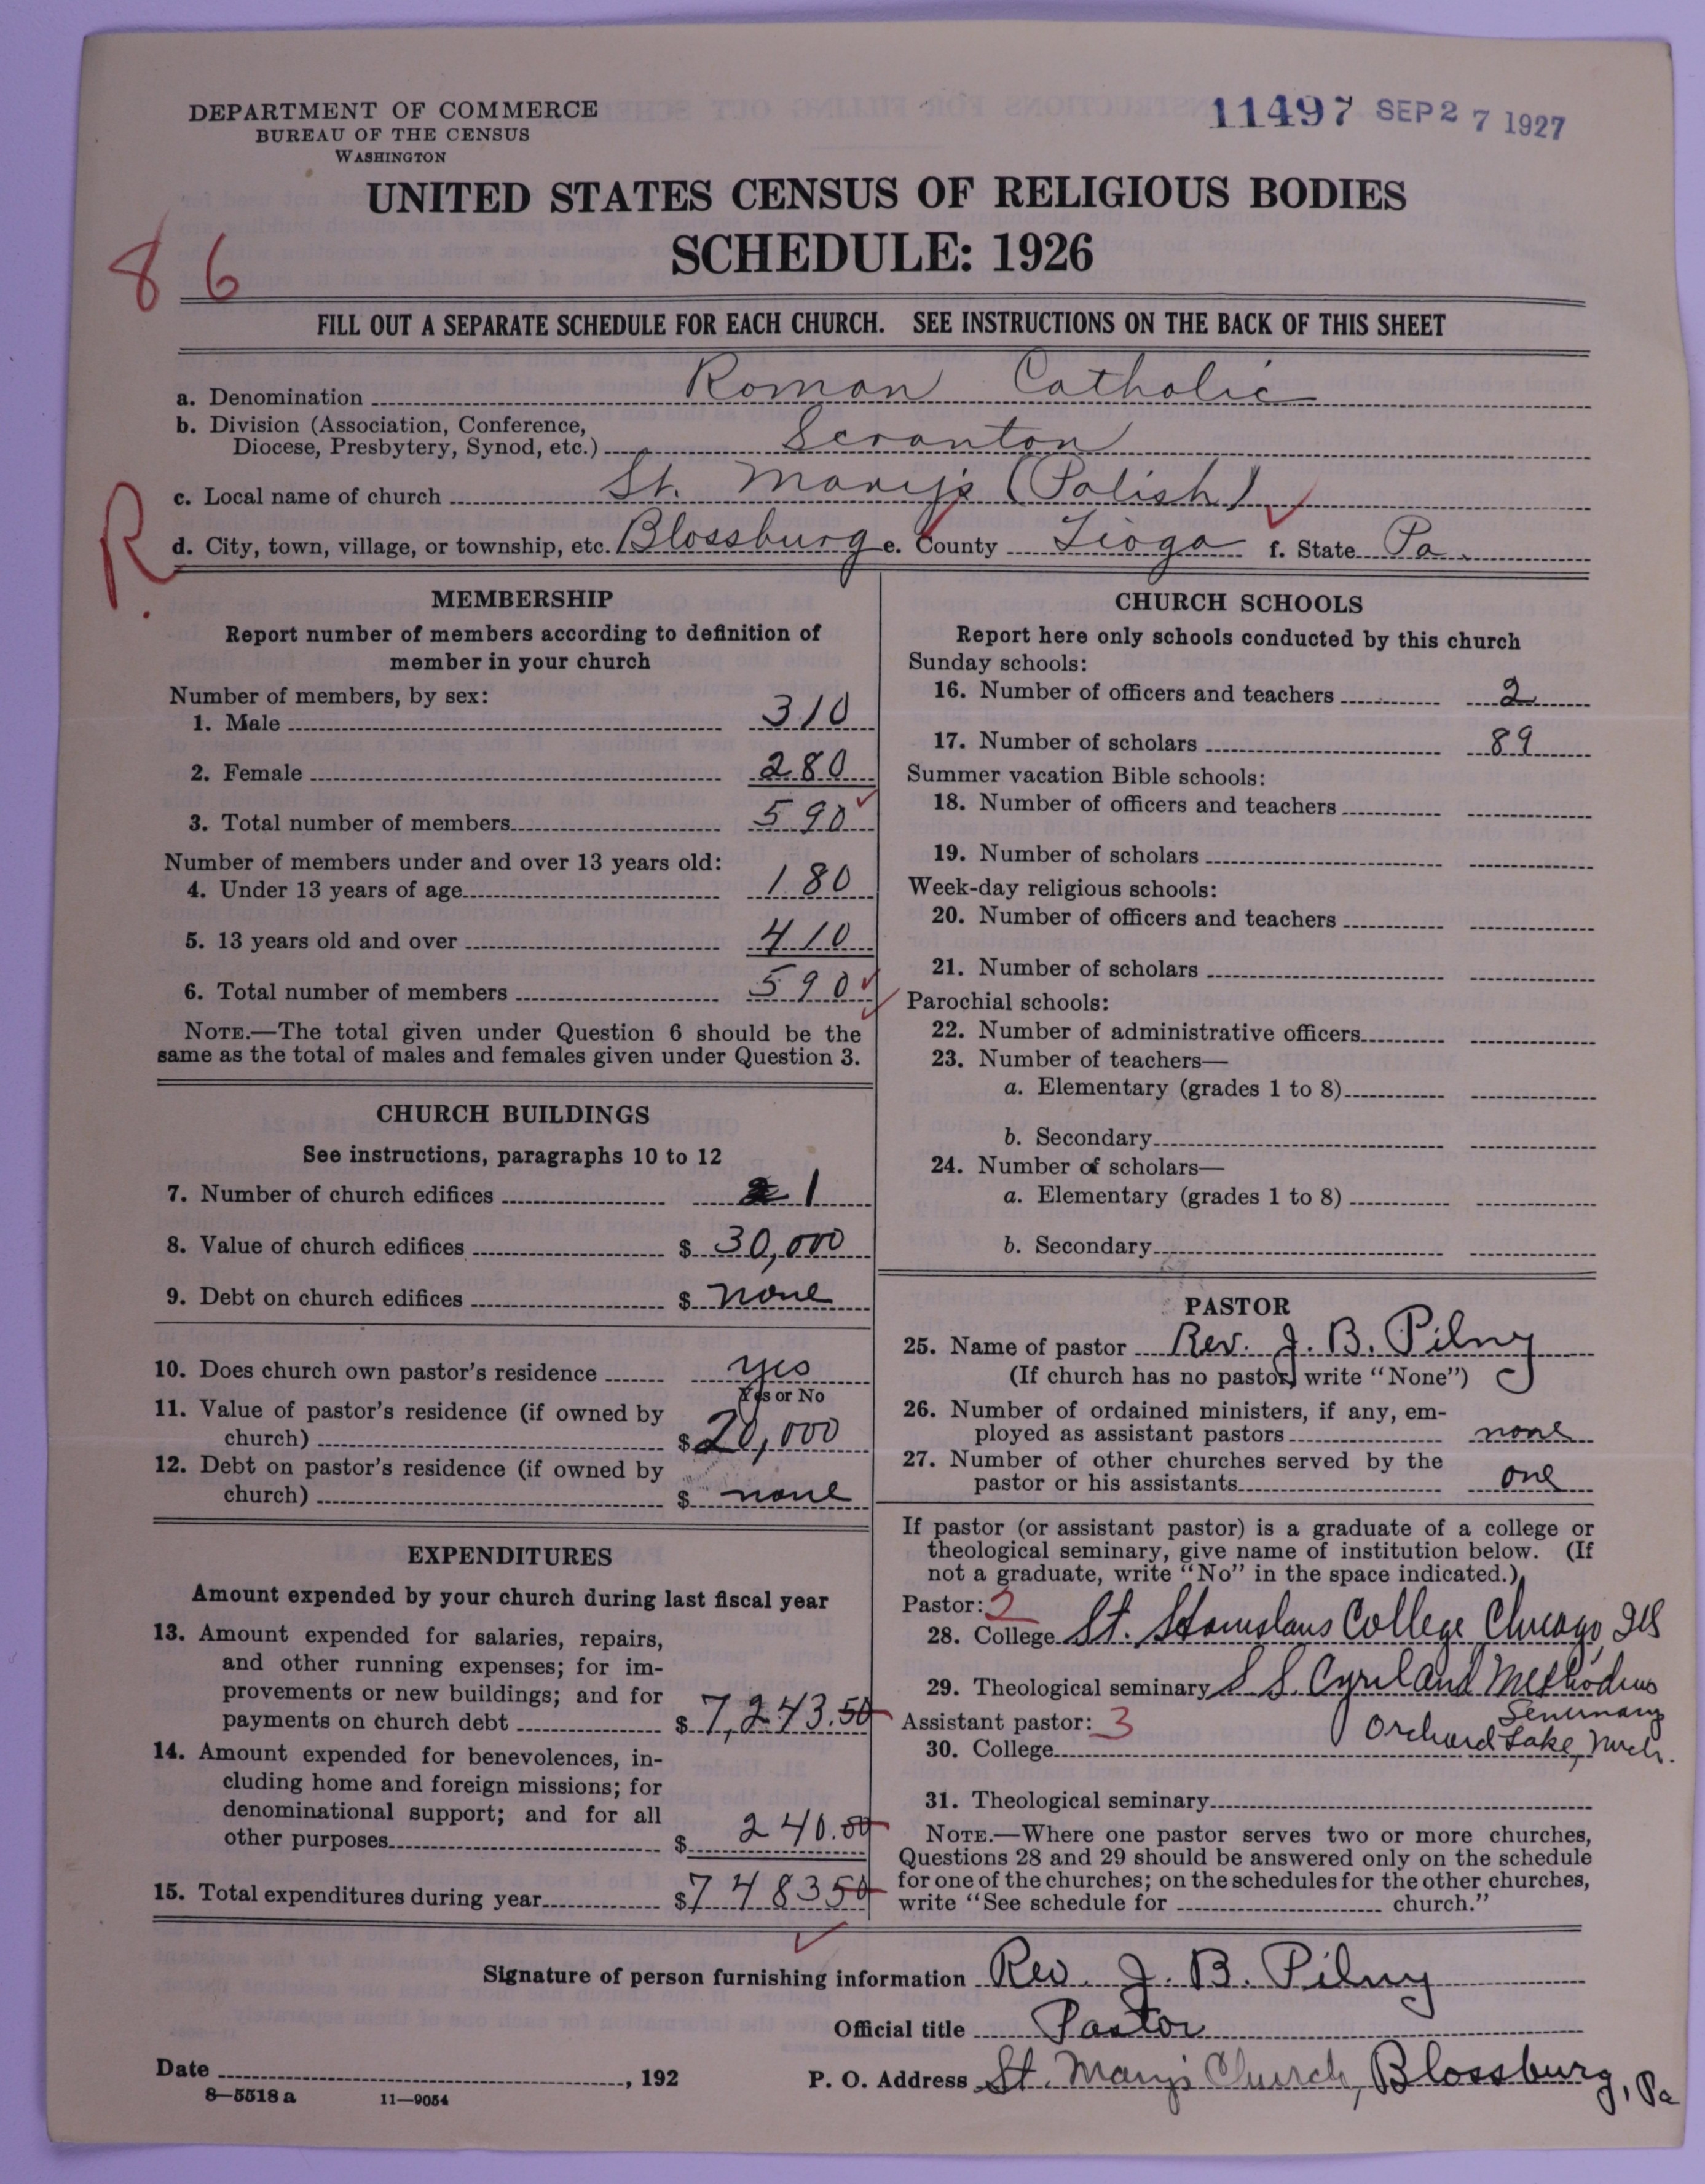 DEPARTMENT OF COMMERCE
BUREAU OF THE CENSUS
WASHINGTON
11497 SEP 27 1927
UNITED STATES CENSUS OF RELIGIOUS BODIES
SCHEDULE: 1926
86
FILL OUT A SEPARATE SCHEDULE FOR EACH CHURCH. SEE INSTRUCTIONS ON THE BACK OF THIS SHEET
a. Denomination Roman Catholic
b. Division (Association, Conference,
Diocese, Presbytery, Synod, etc.) Scranton
R.
c. Local name of church St. Mary's (Polish)
d. City, town, village, or township, etc. Blossburg e. County Tioga f. State Pa.
MEMBERSHIP
Report number of members according to definition of
member in your church
Number of members, by sex:
1. Male 310
2. Female 280
3. Total number of members 590
Number of members under and over 13 years old:
4. Under 13 years of age 180
5. 13 years old and over 410
6. Total number of members 590
NOTE.—The total given under Question 6 should be the
same as the total of males and females given under Question 3.
CHURCH BUILDINGS
See instructions, paragraphs 10 to 12
7. Number of church edifices 1
8. Value of church edifices $ 30,000
9. Debt on church edifices $ none
10. Does church own pastor's residence yes
Yes or No
11. Value of pastor's residence (if owned by
church) $ 20,000
12. Debt on pastor's residence (if owned by
church) $ none
EXPENDITURES
Amount expended by your church during last fiscal year
13. Amount expended for salaries, repairs,
and other running expenses; for im-
provements or new buildings; and for
payments on church debt $ 7,243.50
14. Amount expended for benevolences, in-
cluding home and foreign missions; for
denominational support; and for all
other purposes $ 240.00
15. Total expenditures during year $ 7483 50
CHURCH SCHOOLS
Report here only schools conducted by this church
Sunday schools:
16. Number of officers and teachers 2
17. Number of scholars 89
Summer vacation Bible schools:
18. Number of officers and teachers
19. Number of scholars
Week-day religious schools:
20. Number of officers and teachers
21. Number of scholars
Parochial schools:
22. Number of administrative officers
23. Number of teachers—
a. Elementary (grades 1 to 8)
b. Secondary
24. Number of scholars—
a. Elementary (grades 1 to 8)
b. Secondary
PASTOR
25. Name of pastor Rev. J. B. Pilny
(If church has no pastor, write "None")
26. Number of ordained ministers, if any, em-
ployed as assistant pastors none
27. Number of other churches served by the
pastor or his assistants one
If pastor (or assistant pastor) is a graduate of a college or
theological seminary, give name of institution below. (If
not a graduate, write "No" in the space indicated.)
Pastor: 2
28. College St. Stanislaus College Chicago Ills
29. Theological seminary S S. Cyril and Methodius
Seminary
Assistant pastor: 3 Orchard Lake, Mich.
30. College
31. Theological seminary
NOTE.—Where one pastor serves two or more churches,
Questions 28 and 29 should be answered only on the schedule
for one of the churches; on the schedules for the other churches,
write "See schedule for church."
Signature of person furnishing information Rev. J. B. Pilny
Official title Pastor
Date , 192 P. O. Address St. Mary's Church, Blossburg, Pa
8—5518 a 11—9054